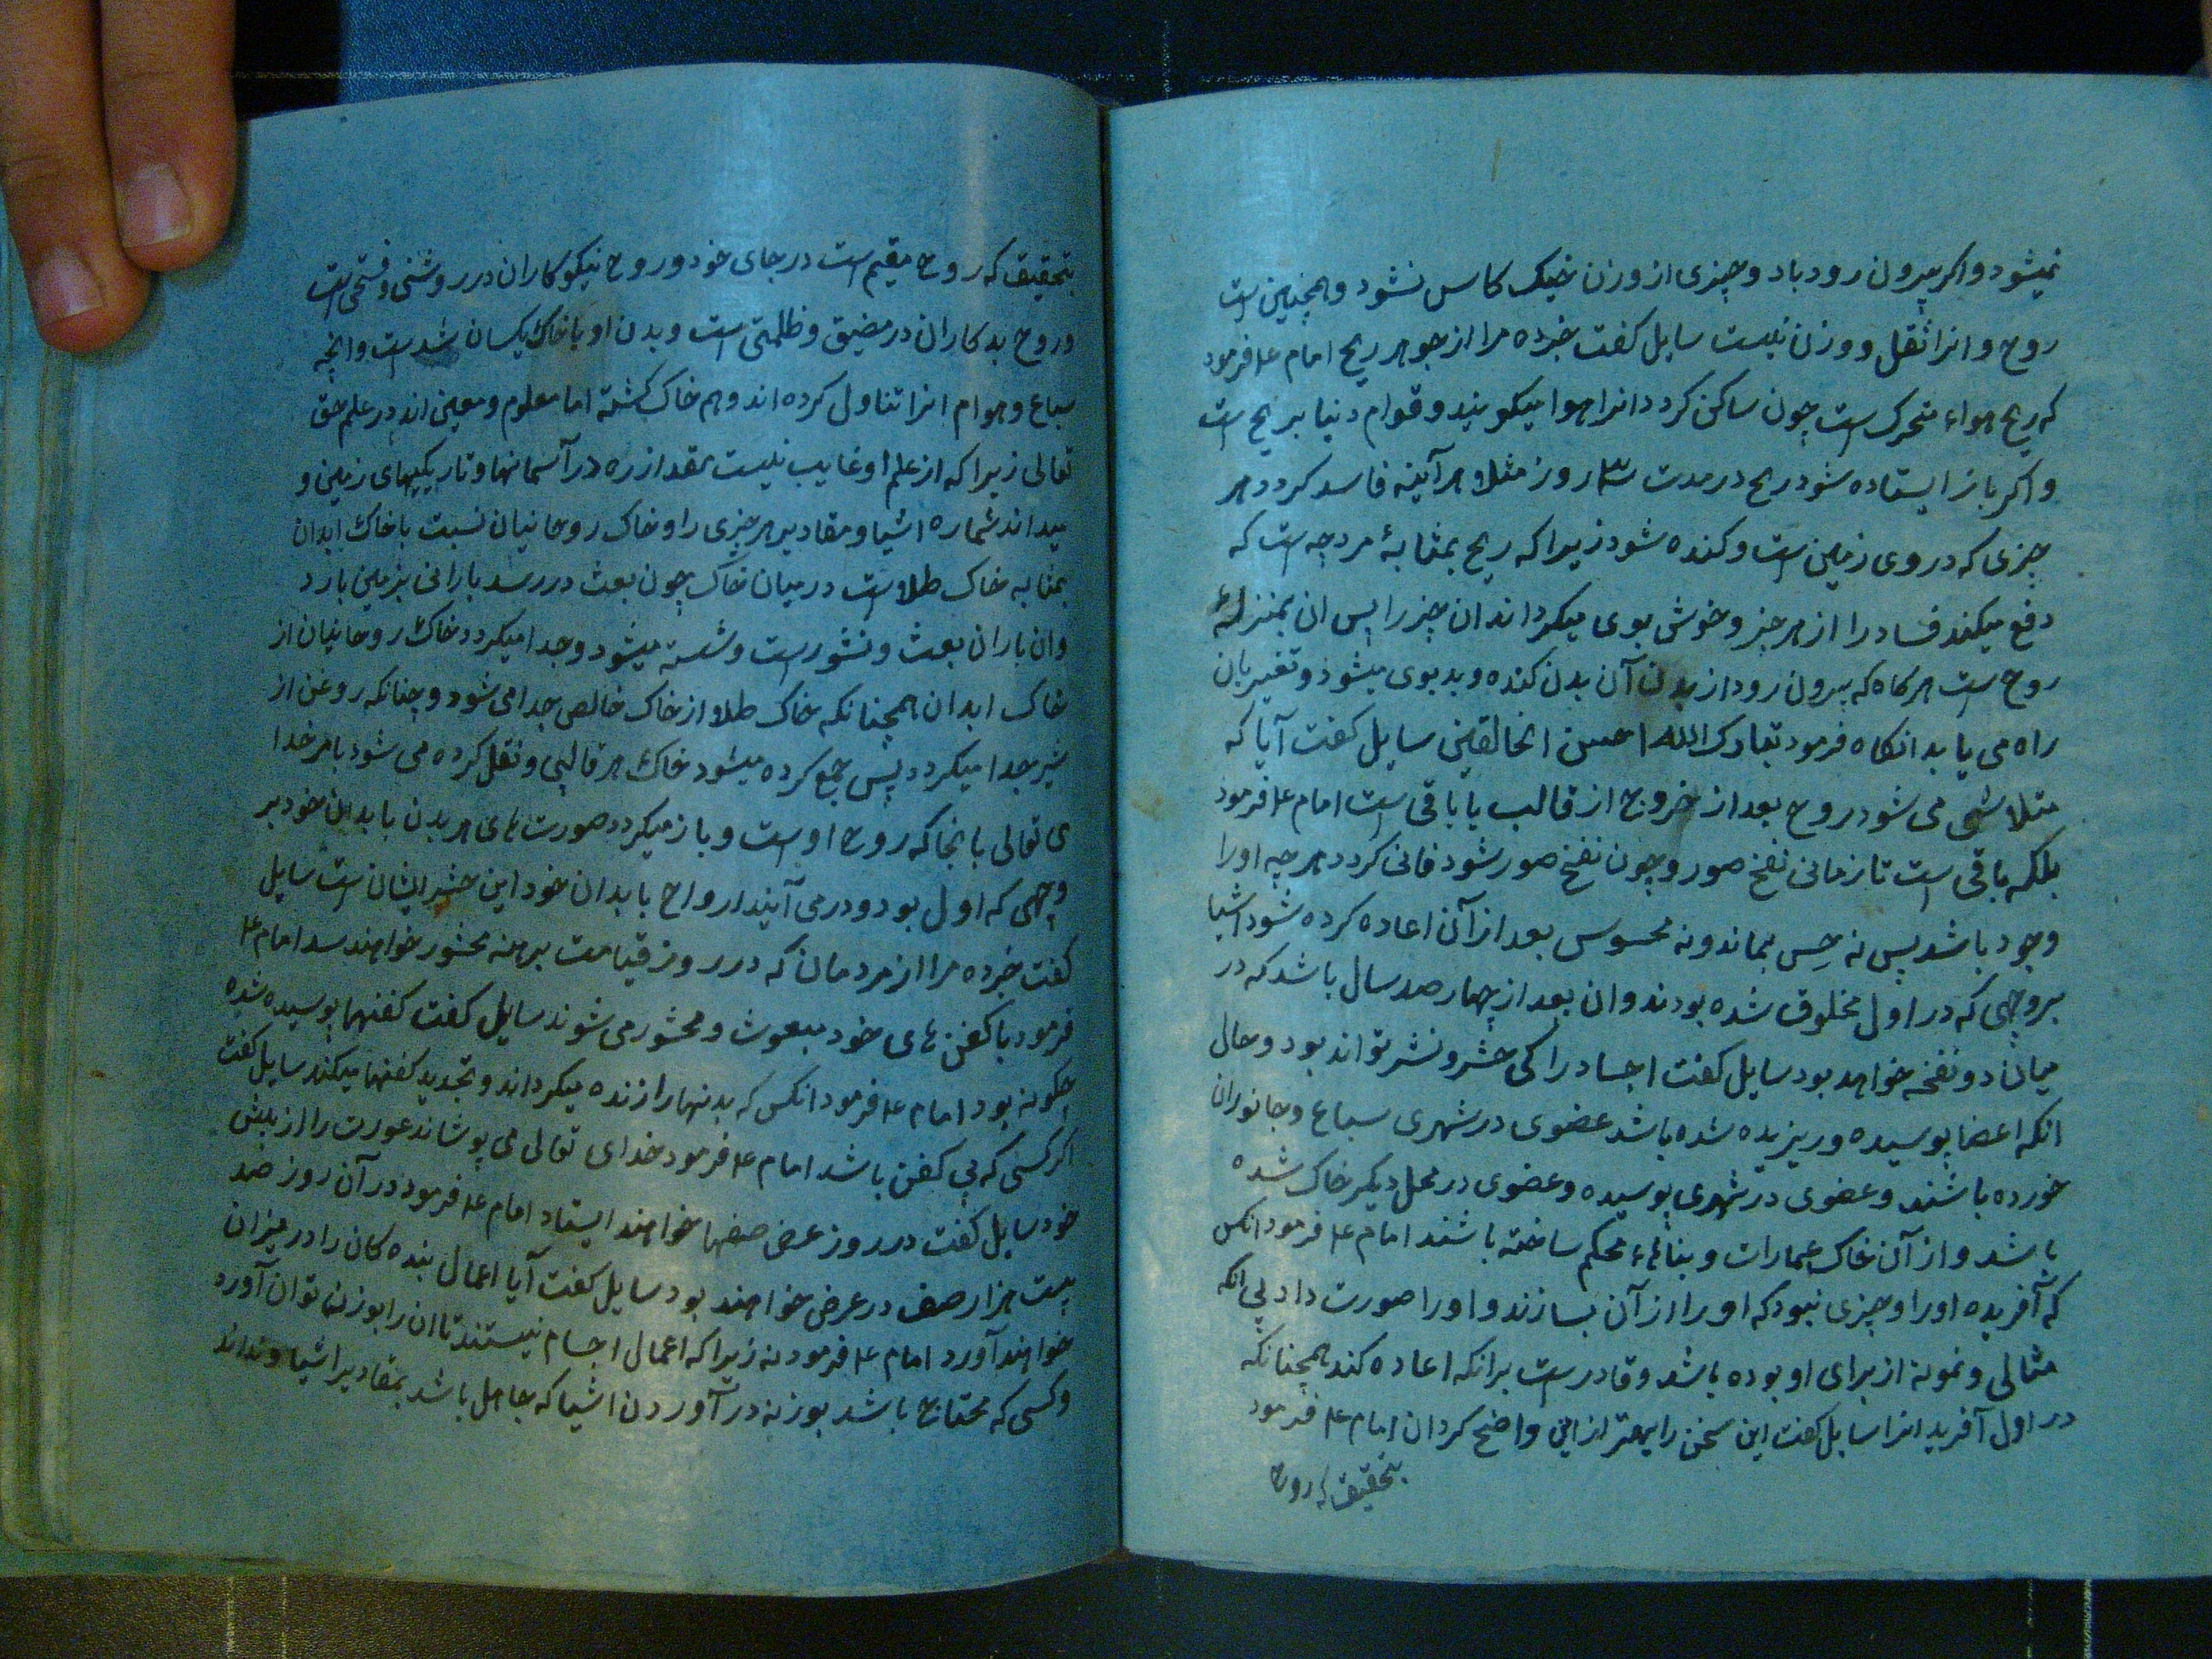 نمیشود و اکر بیرون رود باد و چیزی از وزن خیک کاس نشود و همچنین است
روح و انرا ثقل و وزن نیست سایل کفت خبر ده مرا از جوهر ریح امام ع فرمود
که ریح هواء متحرک است چون ساکن کردد انرا هوا میکویند و قوام دنیا بریح است
و اکر باز ایستاده شود ریح در مدت ۳ روز مثلا هر آینه فاسد کردد هر
چیزی که در روی زمین است و کنده شود زیرا که ریح بمثابهٔ مروحه است که
دفع میکند فساد را از هر چیز و خوش بوی میکرداند ان چیز را پس ان بمنزلهٔ
روح است هر کاه که بیرون رود از بدن آن بدن کنده و بدبوی میشود و تغیر بان
راه می یابد انکاه فرمود تبارک الله احسن الخالقین سایل کفت آیا که
متلاشی می شود روح بعد از خروج از قالب یا باقی است امام ع فرمود
بلکه باقی است تا زمانی نفخ صور و چون نفخ صور شود فانی کردد هر چه او را
وجود باشد پس نه حِس بماند و نه محسوس بعد از آن اعاده کرده شود اشیا
بروجهی که در اول مخلوق شده بودند و ان بعد از چهارصد سال باشد که در
میان دو نفخه خواهد بود سایل کفت اجساد را کی حشر و نشر تواند بود و حال
انکه اعضا پوسیده و ریزیده شده باشد عضوی در شهری سباع و جانوران
خورده باشند و عضوی در شهری پوسیده و عضوی در محل دیکر خاک شده
باشد و از آن خاک عمارات و بناهاء محکم ساخته باشند امام ع فرمود انکس
که آفریده او را و چیزی نبود که او را از آن بسازند و او را صورت داد بی انکه
مثالی و نمونه از برای او بوده باشد و قادرست برانکه اعاده کند همچنانکه
در اول آفرید انرا سایل کفت این سخن را بهتر ازین واضح کردان امام ع فرمود
بتحقیق که روح
بتحقیق که روح مقیم است در جای خود و روح نیکوکاران در روشنی و فسحی است
و روح بدکاران در مضیق و ظلمتی است و بدن او باخاک یکسان شدست و انچه
سباع و هوام انرا تناول کرده اند و هم خاک کشته اما معلوم و معین اند در علم حق
تعالی زیرا که از علم او غایب نیست مقدار زره در آسمانها و تاریکیهای زمین و
میداند شماره اشیا و مقادیر هر چیزی را و خاک روحانیان نسبت باخاک ابدان
بمثابه خاک طلاست در میان خاک چون بعث در رسد بارانی بزمین بارد
وان باران بعث و نشورست و شسته میشود و جدا میکردد خاک روحانیان از
خاک ابدان همچنانکه خاک طلا از خاک خالص جدا می شود و چنانکه روغن از
شیر جدا میکردد پس جمع کرده میشود خاک هر قالبی و نقل کرده می شود بامر خدا
ی تعالی بانجا که روح اوست و باز میکردد صورت های هر بدن با بدان خود بر
وجهی که اول بود و در می آیند ارواح بابدان خود این حشر ایشان است سایل
کفت خبر ده مرا از مردمان که در روز قیامت برهنه محشور خواهند شد امام ع
فرمود با کفن های خود مبعوث و محشور می شوند سایل کفت کفنها پوسیده شده
چکونه بود امام ع فرمود انکس که بدنها را زنده میکرداند و تجدید کفنها میکند سایل کفت
اکر کسی که بی کفن باشد امام ع فرمود خدای تعالی می پوشاند عورت را از پیش
خود سایل کفت در روز عرض صفها خواهند ایستاد امام ع فرمود در آن روز صد
بیست هزار صف در عرض خواهند بود سایل کفت آیا اعمال بنده کان را در میزان
خواهند آورد امام ع فرمود نه زیرا که اعمال اجسام نیستند تا ان را بوزن توان آورد
و کسی که محتاج باشد بوزنه در آوردن اشیا که جاهل باشد بمقادیر اشیا و نداند